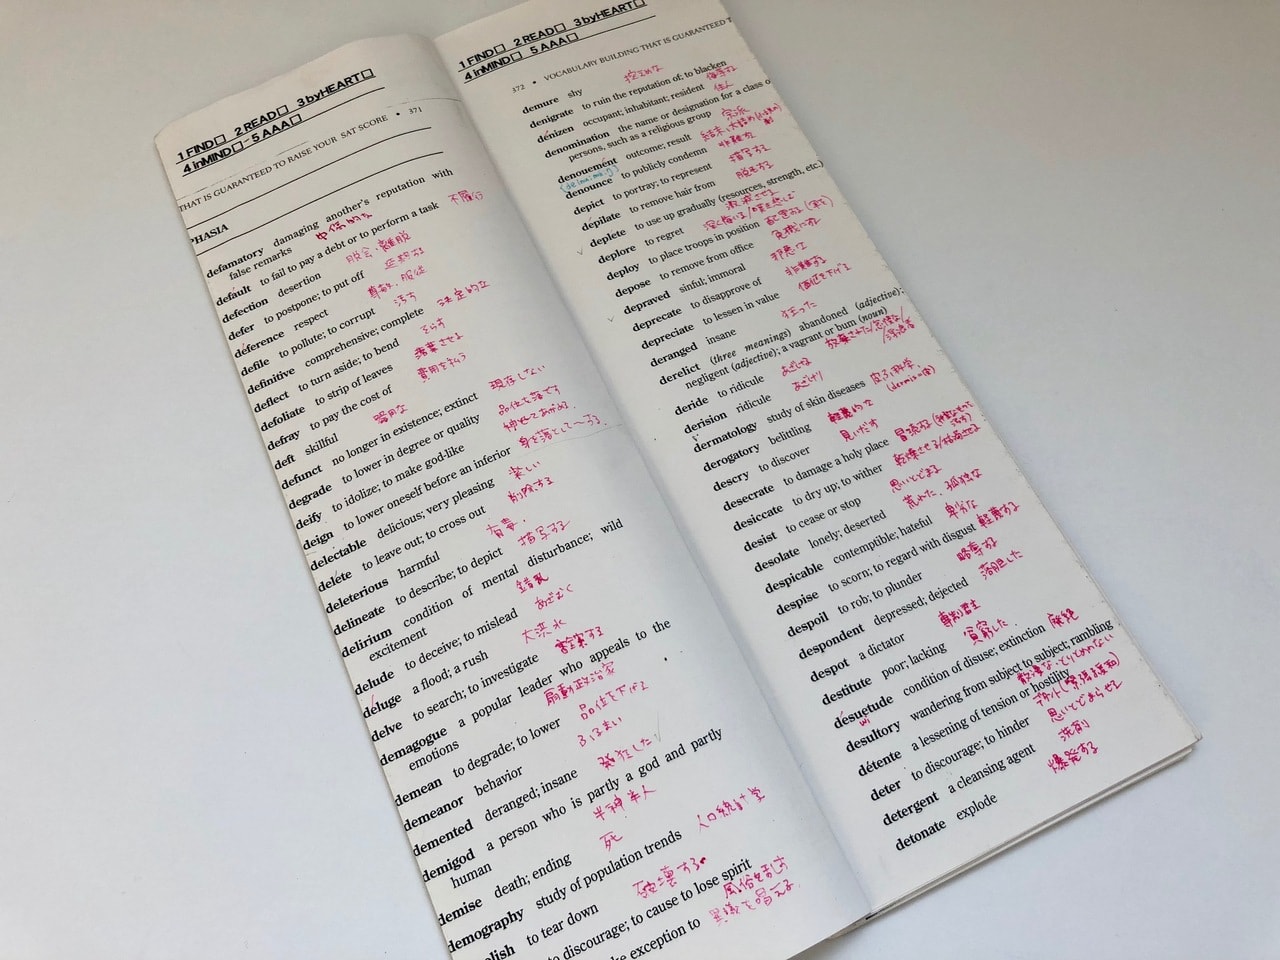 1 FIND□ 2 READ□ 3 byHEART□
4 inMIND□ 5 AAA□
THAT IS GUARANTEED TO RAISE YOUR SAT SCORE • 371
PHASIA
defamatory damaging another's reputation with
false remarks 中傷的な
default to fail to pay a debt or to perform a task 不履行
defection desertion 脱会・離脱
defer to postpone; to put off 延期する
deference respect 尊敬・服従
defile to pollute; to corrupt 汚す
definitive comprehensive; complete 決定的な
deflect to turn aside; to bend そらす
defoliate to strip of leaves 落葉させる
defray to pay the cost of 費用を払う
deft skillful 器用な
defunct no longer in existence; extinct 現存しない
degrade to lower in degree or quality 品位を落とす
deify to idolize; to make god-like 神としてあがめる
deign to lower oneself before an inferior 身を落として〜する.
delectable delicious; very pleasing 楽しい
delete to leave out; to cross out 削除する
deleterious harmful 有毒.
delineate to describe; to depict 描写する
delirium condition of mental disturbance; wild
excitement 錯乱
delude to deceive; to mislead あざむく
deluge a flood; a rush 大洪水
delve to search; to investigate
demagogue a popular leader who appeals to the
emotions 扇動政治家
demean to degrade; to lower 品位を下げる
demeanor behavior ふるまい
demented deranged; insane 発狂した
demigod a person who is partly a god and partly
human 半神半人
demise death; ending 死
demography study of population trends 人口統計学
olish to tear down 破壊する
to discourage; to cause to lose spirit 風俗を乱す
ke exception to 異議を唱える
1 FIND□ 2 READ□ 3 byHEART□
4 inMIND□ 5 AAA□
372 • VOCABULARY BUILDING THAT IS GUARANTEED T
demure shy 控えめな
denigrate to ruin the reputation of; to blacken
denizen occupant; inhabitant; resident 住人
denomination the name or designation for a class o
persons, such as a religious group 宗派
denouement outcome; result 結末,
denounce to publicly condemn 非難する
depict to portray; to represent 描写する
depilate to remove hair from 脱毛する
deplete to use up gradually (resources, strength, etc.)
deplore to regret
deploy to place troops in position 配置する
depose to remove from office 免職にする
depraved sinful; immoral 邪悪な
deprecate to disapprove of 非難する
depreciate to lessen in value 価値を下げる
deranged insane 狂った
derelict (three meanings) abandoned (adjective);
negligent (adjective); a vagrant or bum (noun)
deride to ridicule あざける
derision ridicule あざけり
dermatology study of skin diseases 皮ふ科学
derogatory belittling 軽蔑的な
descry to discover 見いだす
desecrate to damage a holy place 冒涜する
desiccate to dry up; to wither 乾燥させる/
desist to cease or stop 思いとどまる
desolate lonely; deserted 荒れた, 孤独な
despicable contemptible; hateful 卑劣な
despise to scorn; to regard with disgust 軽蔑する
despoil to rob; to plunder 略奪する
despondent depressed; dejected 落胆した
despot a dictator 専制君主
destitute poor; lacking 貧窮した.
desuetude condition of disuse; extinction 廃絶
desultory wandering from subject to subject; rambling
détente a lessening of tension or hostility
deter to discourage; to hinder 思いとどまらせる
detergent a cleansing agent 洗剤
detonate explode 爆発する